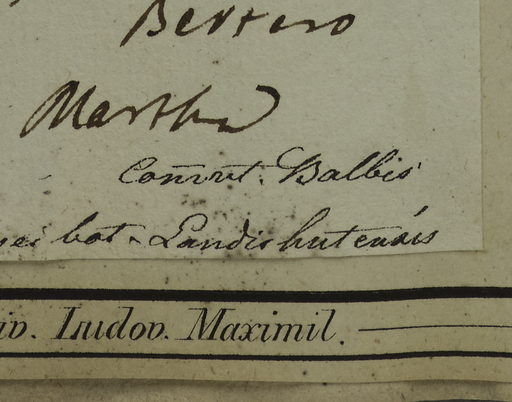 Bertero
Martha
Com̄vt. Balbis
sei bot. Landishutenáis
iv. Ludov. Maximil.